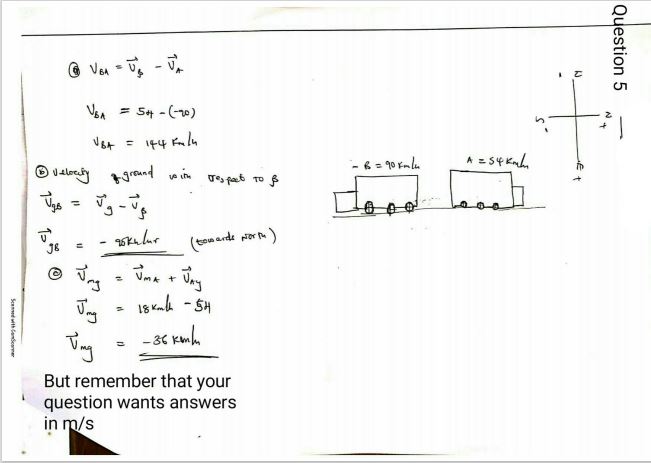 Question 5
(a) V_BA = V_B - V_A
V_BA = 54 - (-90)
V_BA = 144 Km/h
(b) Velocity of ground with respect to B
V_gB = V_g - V_B
V_gB = - 90Km/hr (towards North)
(c) V_mg = V_mA + V_Ag
V_mg = 18 Km/h - 54
V_mg = -36 Km/h
- B = 90 Km/h
A = 54 Km/h
But remember that your
question wants answers
in m/s
Scanned with CamScanner